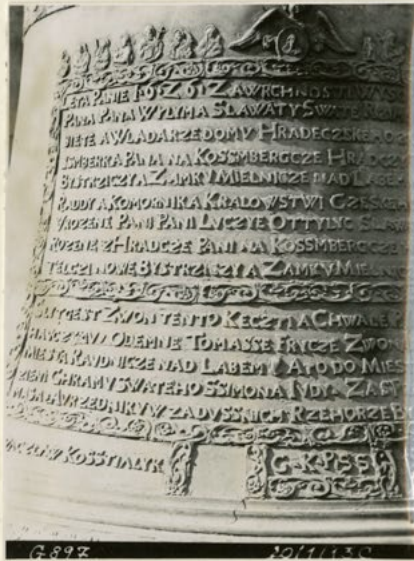 LETA PANIE 1612 ZAWRCHNOSTI
PANA PANA WYLYMA SLAWATY SWATE
SIETE A WLADARZE DOMV HRADECZSKEHO
PANA NA KOSSMBERGCZE HRADCZY
BYSTRZICZY A ZAMKV MIELNICZE NAD LABE
RADDY A KOMORNIKA KRALOWSTWI CZESKEH
VROZENI PANI PANI LVCZYE OTTYLYC SLAW
ROZENE Z HRADCZE PANI NA KOSSMBERGCZE
TELCZI NOWE BYSTRZICZY A ZAMKV MIELNIC
GEST ZWON TENTO KECZTI A CHWALE
ODEMNE TOMASSE FRYCZE ZWON
MIESTA RAVDNICZE NAD LABEM A TO DO MIES
CHRAMV SWATEHO SSIMONA IVDY ZA ST
VRZEDNIKVW ZADVSSNICH RZEHORZE
KOSSTIALYK
G·K·P·S·S
G 897
20/1/13C